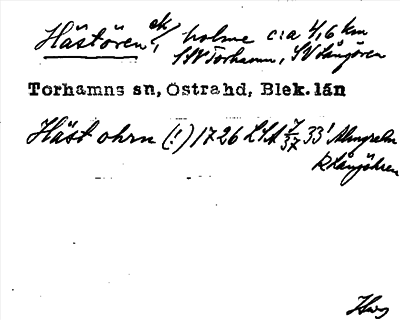 Hästören ek/ holme c:a 4,6 km
SSV Torhamn, SV Långören
Torhamns sn, Östra hd, Blek. län
Häst ohrn (!) 1726 LSA 7/37 33' Almgrahn
R Långöhren